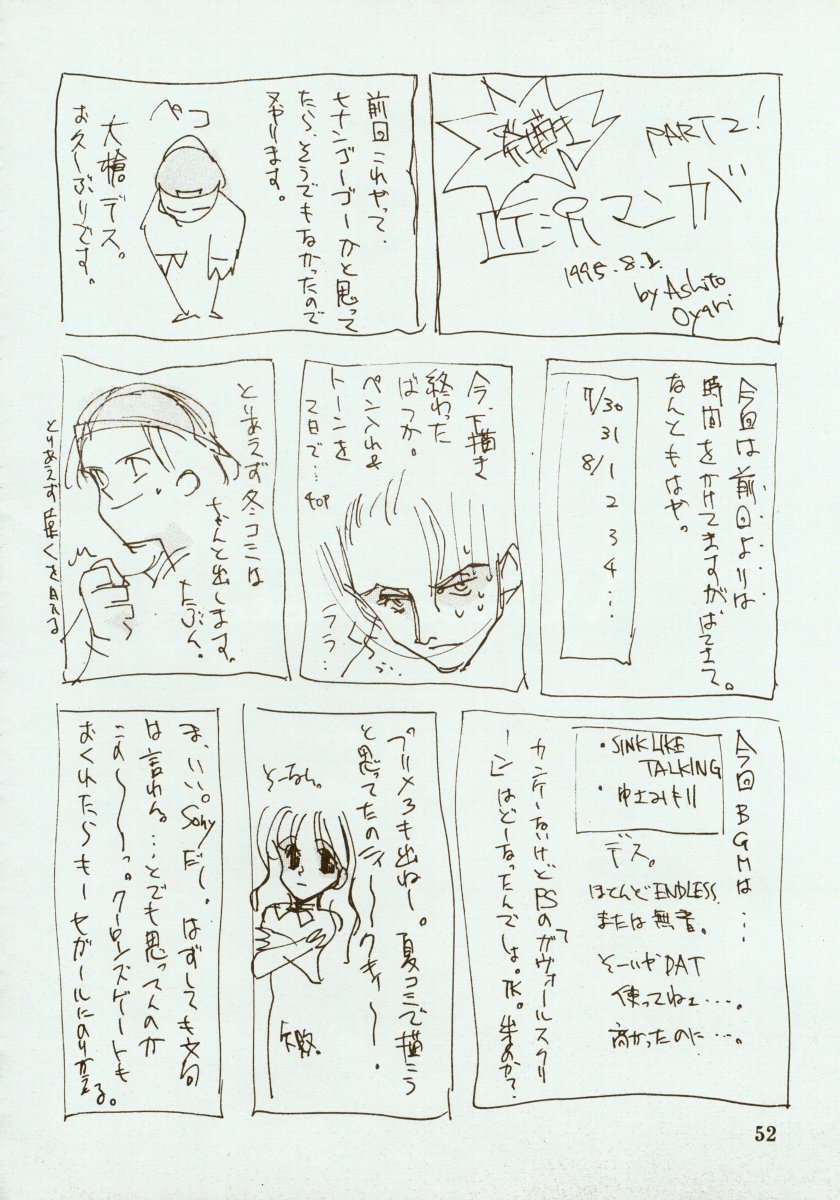 PART2!
マンガ
1995.8.2.
by Ashito
Oyari
前回これやって、
セナンゴーゴーかと思って
たら、そうでもなかったので
又やります。
ペコ
大槍デス。
お久しぶりです。
今回は前回よりは
時間をかけてますがばてきて。
なんともはや。
7/30
31
8/1
2
3
4
⋮
今、下描き
終わった
ばっか。
ペン入れ&
トーンを
2日で…
40P
ララ…
とりあえず冬コミは
ちゃんと出します。
たぶん。
今回BGMは…
・SINK LIKE
TALKING
デス。
ほとんどENDLESS
または無音。
そーいやDAT
使ってねェ…。
高かったのに…。
カンケーないけどPSの「ガヴォールスクリ
ーン」はどーなったんでしょ。TK。
プリメ3も出ねー。夏コミで描こう
と思ってたのにィ〜〜クキィ〜〜。
そーなん。
ま、いい。Sonyだし。はずしても文句
は言わん。…とでも思ってんのか
この〜〜〜っ。クーロンズゲートも
おくれたらもーセガールにのりかえる。
52